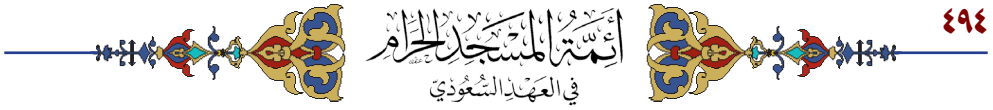 ٤٩٤
أَئِمَّةُ المَسْجِدِ الحَرَامِ
فِي العَهْدِ السُّعُودِيّ